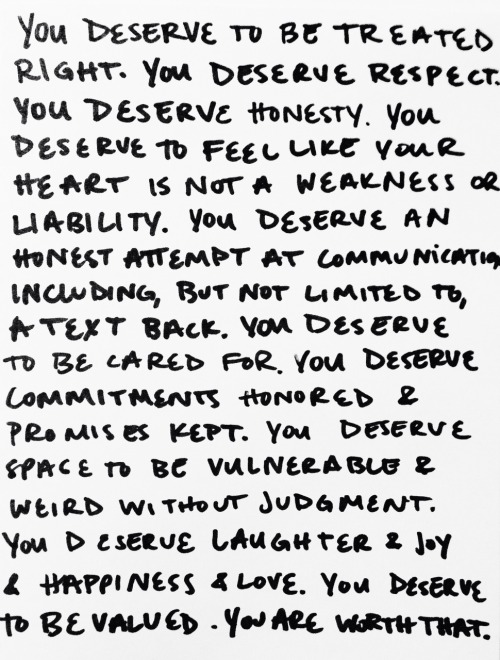 You DESERVE TO BE TREATED
RIGHT. You DESERVE RESPECT.
You DESERVE HONESTY. You
DESERVE TO FEEL LIKE YOUR
HEART IS NOT A WEAKNESS OR
LIABILITY. You DESERVE AN
HONEST ATTEMPT AT COMMUNICATIO
INCLUDING, BUT NOT LIMITED TO,
A TEXT BACK. You DESERVE
TO BE CARED FOR. You DESERVE
COMMITMENTS HONORED &
PROMISES KEPT. You DESERVE
SPACE TO BE VULNERABLE &
WEIRD WITHOUT JUDGMENT.
You DESERVE LAUGHTER & JOY
& HAPPINESS & LOVE. You DESERVE
TO BE VALUED. You ARE WORTH THAT.